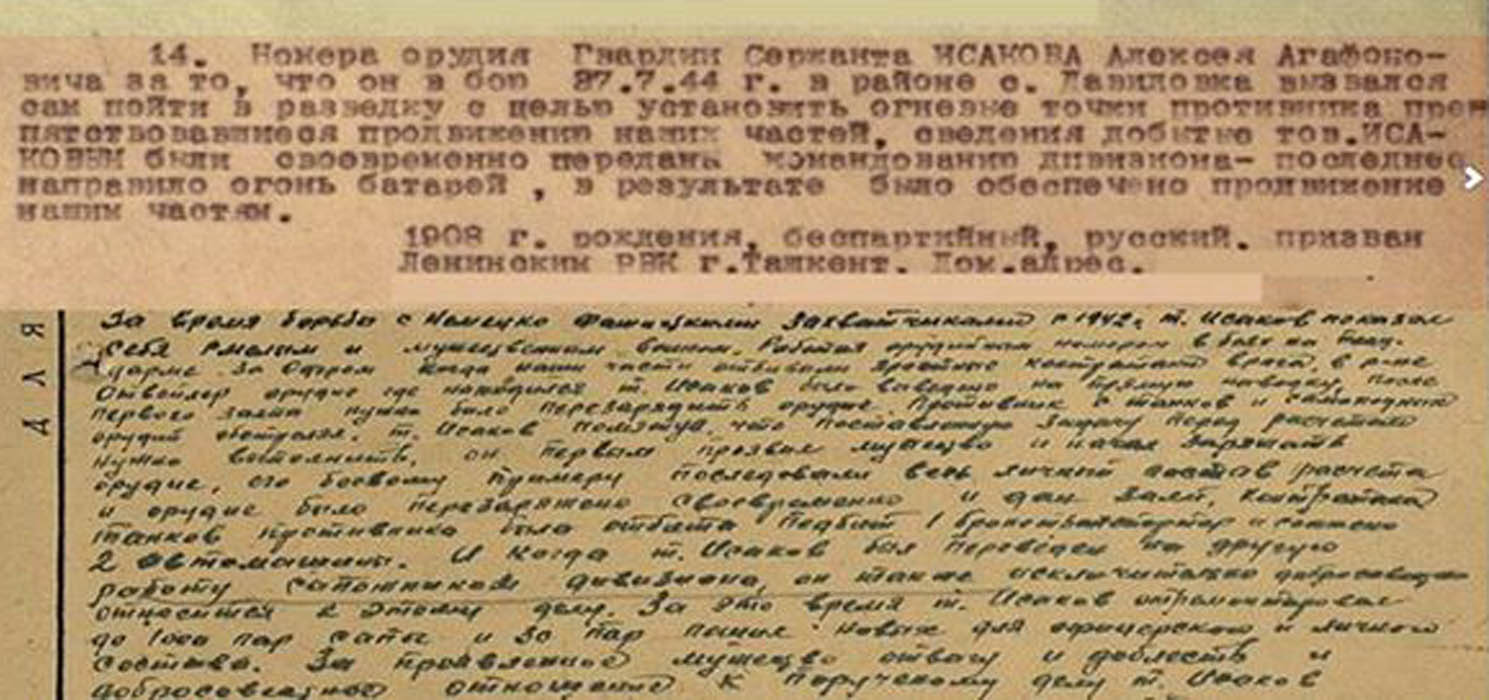 14. Номера орудия Гвардии Сержанта ИСАКОВА Алексея Агафоно-
вича за то, что он в бою 27.7.44 г. в районе с. Даниловка вызвался
сам пойти в разведку с целью установить огневые точки противника преп
пятствовавшиеся продвижению наших частей, сведения добытые тов.ИСА-
КОВЫМ были своевременно переданы командованию дивизиона- последнее
направило огонь батарей , в результате было обеспечено продвижение
нашим частям.
1908 г. рождения, беспартийный, русский. призван
Ленинским РВК г.Ташкент. Дом.адрес.
ДЛЯ
За время борьбы с Немецко Фашистскими Захватчиками с 1942г. т. Исаков показал
себя смелым и мужественным воином. Работая орудийным номером в боях на
за Одером когда наши части отбивали яростные контратаки врага, в р-не
орудие где находился т. Исаков было выведено на прямую наводку, после
первого залпа нужно было перезарядить орудие. Противник с танков и самоходных
орудий обстрелял. т. Исаков что поставленную задачу перед расчетом
нужно выполнить, он первым проявил мужество и начал заряжать
орудие, его боевому примеру последовали весь личный состав расчета
и орудие было перезаряжено своевременно и дан залп, контратака
танков противника была отбита подбит 1 бронетранспортер и сожжено
2 автомашины. И когда т. Исаков был переведен на другую
работу сапожником дивизиона, он также исключительно добросовестно
относится к этому делу. За это время т. Исаков отремонтировал
до 1000 пар сапог и 30 пар пошил новых для офицерского и личного
состава. За проявленное мужество отвагу и доблесть и
добросовестное отношение к порученному делу т. Исаков